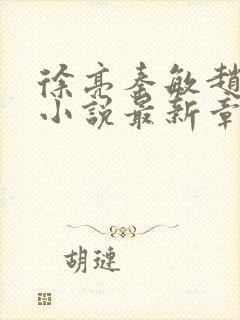 徐亮秦敏趙
小說最新章
胡璉